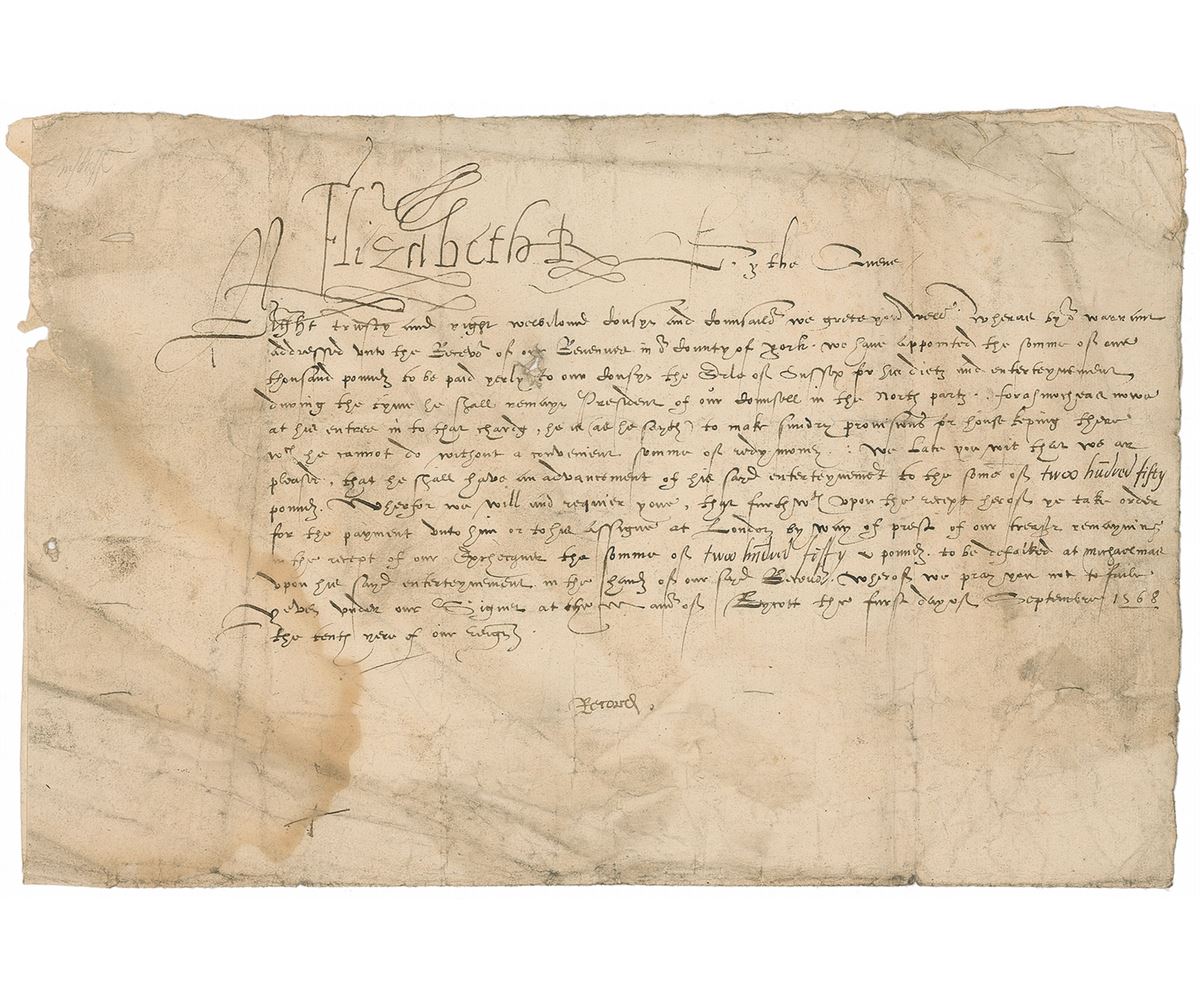 Elizabeth R
By the Quene
Right trusty and right welbiloved Cousyn and Counsailor we grete you well. Wheras by or warrant
addressed unto the Recevor of our Revenues in or County of York. we have appointed the somme of one
thousand poundes to be paid yerly to our Cousyn the Erle of Sussex for his dietes and enterteynement
during the tyme he shall remayn President of our Counsell in the North partes. forasmocheas nowe
at his entree in to that chardg, he is (as he sayeth) to make sundry provisions for house keping there
wch he cannot do without a convenient somme of redy money. We Late you wit that we ar
pleased, that he shall have an advancement of his sayd enterteynement to the some of twoo hundred fifty
poundes. Wherfor we will and requier youe, that furthwt upon the receipt herof ye take order
for the payment unto him or to his assigne at London by way of prest of our treasr remayning
in the receipt of our Exchequer the somme of twoo hundred fiffty poundes. to be defalked at Michaelmas
upon his sayd enterteynement in the handes of our sayd Recevor. Wherof we pray you not to faile.
Yeven under our Signet at the of Rycott the furst day of Septembre 1568
the tenth yere of our reign